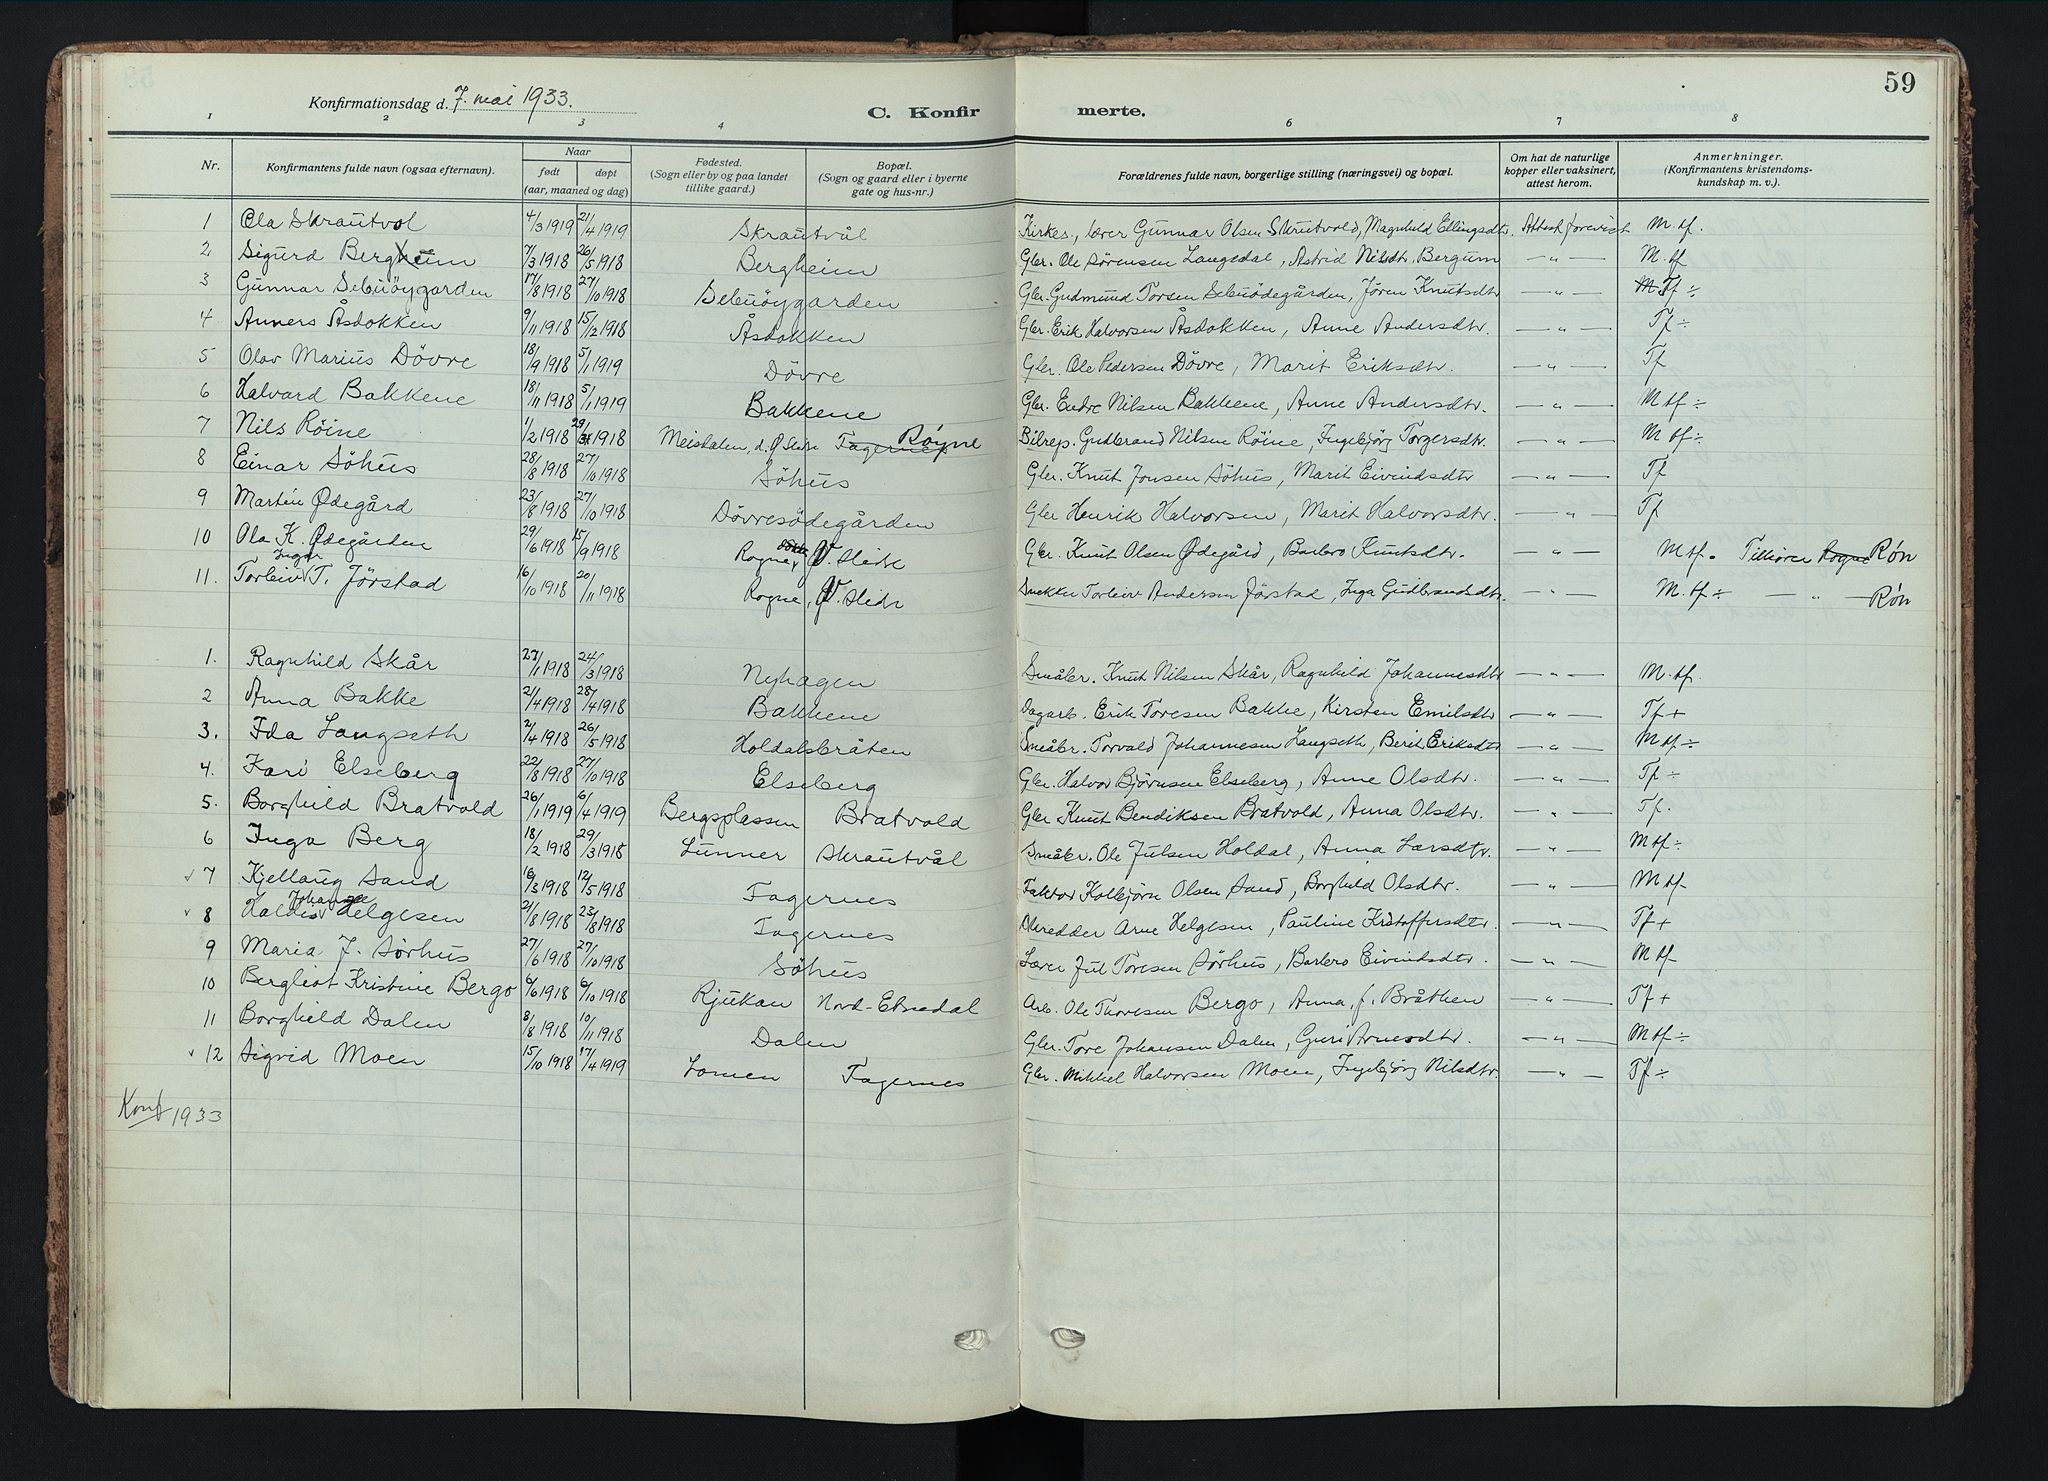 59
Konfirmationsdag d. 7. mai 1933.
C. Konfirmerte.
1 2 3 4 6 7 8
Nr. Konfirmantens fulde navn (ogsaa efternavn). Naar født døpt (aar, maaned og dag) Fødested. (Sogn eller by og paa landet tillike gaard.) Bopæl. (Sogn og gaard eller i byerne gate og hus-nr.) Forældrenes fulde navn, borgerlige stilling (næringsvei) og bopæl. Om hat de naturlige kopper eller vaksinert, attest herom. Anmerkninger. (Konfirmantens kristendomskundskap m. v.).
1 Ola Skrautvol 4/3 1919 21/4 1919 Skrautvål Kirkes., lærer Gunnar Olsen Skrutvold, Magnhild Ellingsdtr. Attest forevist M. tf.
2 Sigurd Bergheim 7/3 1918 26/5 1918 Bergheim Gbr. Ole Sørensen Langedal, Astrid Nilsdtr. Bergum — " — M. tf
3 Gunnar Sebuöygarden 17/8 1918 27/10 1918 Sebuöygarden Gbr. Gudmund Torsen Sebuödegården, Jøren Knutsdtr — " — Tf ÷
4 Anners Åsdokken 9/11 1918 15/12 1918 Åsdokken Gbr. Erik Halvorsen Åsdokken, Anne Andersdtr. — " — Tf ÷
5 Olav Marius Dövre 18/9 1918 5/1 1919 Dövre Gbr. Ole Pedersen Dövre, Marit Eriksdtr. — " — Tf
6 Halvard Bakkene 18/11 1918 5/1 1919 Bakkene Gbr. Endre Nilsen Bakkene, Anne Andersdtr. — " — M tf ÷
7 Nils Röine 1/2 1918 29/3 1918 Meistalen, d. Ø Slidre Fagernes Røyne Bilrep. Gudbrand Nilsen Röine, Ingebjörg Torgersdtr. — " — M tf ÷
8 Einar Söhus 28/8 1918 27/10 1918 Söhus Gbr. Knut Jonsen Söhus, Marit Eivindsdtr — " — Tf
9 Martin Ødegård 23/8 1918 27/10 1918 Dövresödegården Gbr Henrik Halvorsen, Marit Halvorsdtr. — " — Tf
10 Ola K. Ødegården 29/6 1918 15/9 1918 Rogne, V. Slidre Gbr. Knut Olsen Ødegård, Barbro Knutsdtr. — " — M tf. Tilhører Rogne Røn
11. Torleiv Ingar T. Jörstad 16/10 1918 20/11 1918 Rogne, V. Slidr Snekker Torleiv Andersen Jörstad, Inga Gudbrandsdtr. — " — M. tf ÷ — " — Røn
1. Ragnhild Skår 27/1 1918 24/3 1918 Nyhagen Småbr. Knut Nilsen Skår, Ragnhild Johannesdtr — " — M. tf.
2 Anna Bakke 21/4 1918 28/4 1918 Bakkene Dagarb. Erik Toresen Bakke, Kirsten Emilsdtr — " — Tf +
3. Ida Langseth 2/4 1918 26/5 1918 Holdalsbråten Småbr. Torvald Johannesen Langseth, Berit Eriksdtr — " — M tf ÷
4. Kari Elseberg 22/8 1918 27/10 1918 Elseberg Gbr. Halvor Bjørnsen Elseberg, Anne Olsdtr. — " — Tf ÷
5. Borghild Bratvold 26/1 1919 6/4 1919 Bergsplassen Bratvold Gbr Knut Bendiksen Bratvold, Anna Olsdtr. — " — Tf.
6 Inga Berg 18/2 1918 29/3 1918 Lunner Skrautvål Småbr. Ole Julsen Holdal, Anna Larsdtr. — " — M tf ÷
√ 7 Kjellaug Sand 16/3 1918 12/5 1918 Fagernes Faktor Kolbjørn Olsen Sand, Borghild Olsdtr. — " — M tf.
√ 8 Haldis Johanne Helgesen 21/8 1918 23/8 1918 Fagernes Arne Helgesen, Pauline Kristoffersdtr. — " — Tf +
9 Maria J. Sørhus 27/6 1918 27/10 1918 Söhus Lærer Jul Toresen Sørhus, Barbro Eivindsdtr. — " — M tf
10 Bergliot Kristine Bergo 6/6 1918 6/10 1918 Rjukan Nord-Etnedal Arb. Ole Thoresen Bergo, Anna, f. Bråthen — " — Tf +
11 Borghild Dalen 8/8 1918 10/11 1918 Dalen Gbr. Tore Johansen Dalen, Guri Arnesdtr. — " — M tf ÷
√ 12 Sigrid Moen 15/10 1918 17/4 1919 Lomen Fagernes Gbr. Mikkel Halvorsen Moen, Ingebjørg Nilsdtr. — " — Tf ÷
Konf 1933